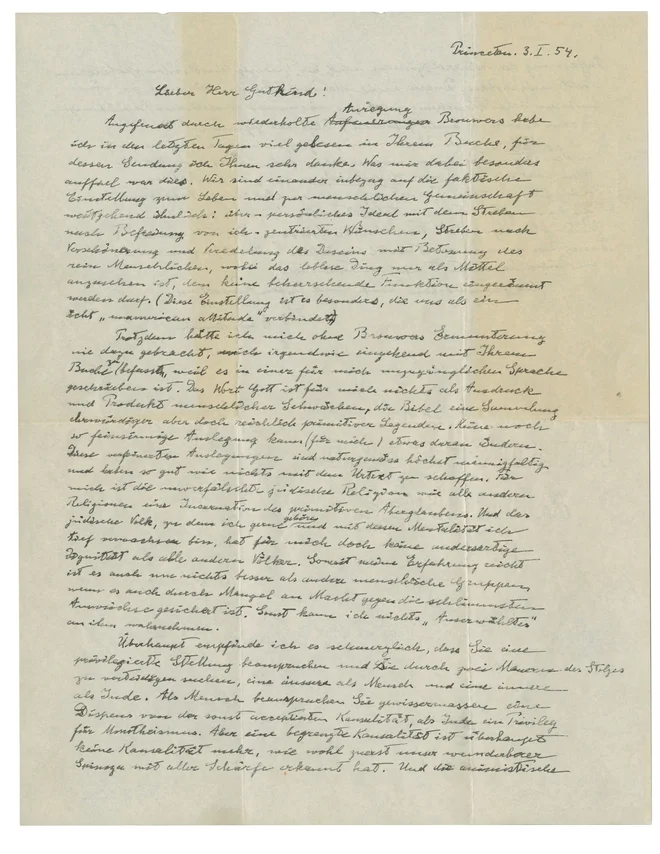 Princeton. 3. I. 54.
Lieber Herr Gutkind!
Angefeuert durch wiederholte Anregung Brouwers habe
ich in den letzten Tagen viel gelesen in Ihrem Buche, für
dessen Sendung ich Ihnen sehr danke. Was mir dabei besonders
auffiel war dies. Wir sind einander inbezug auf die faktische
Einstellung zum Leben und zur menschlichen Gemeinschaft
weitgehend ähnlich: über-persönliches Ideal mit dem Streben
nach Befreiung von ich-zentrierten Wünschen, Streben nach
Verschönerung und Veredelung des Daseins mit Betonung des
rein Menschlichen, wobei das leblose Ding nur als Mittel
anzusehen ist, dem keine beherrschende Funktion eingeräumt
werden darf. (Diese Einstellung ist es besonders, die uns als ein
echt „unamerican attitude" verbindet)
Trotzdem hätte ich mich ohne Brouwers Ermunterung
nie dazu gebracht, mich irgendwie eingehend mit Ihrem
Buche zu befassen, weil es in einer für mich unzugänglichen Sprache
geschrieben ist. Das Wort Gott ist für mich nichts als Ausdruck
und Produkt menschlicher Schwächen, die Bibel eine Sammlung
ehrwürdiger aber doch reichlich primitiver Legenden. Keine noch
so feinsinnige Auslegung kann (für mich) etwas daran ändern.
Diese verfeinerten Auslegungen sind naturgemäss höchst mannigfaltig
und haben so gut wie nichts mit dem Urtext zu schaffen. Für
mich ist die unverfälschte jüdische Religion wie alle anderen
Religionen eine Incarnation des primitiven Aberglaubens. Und das
jüdische Volk, zu dem ich gerne gehöre und mit dessen Mentalität ich
tief verwachsen bin, hat für mich doch keine andersartige
Dignität als alle anderen Völker. Soweit meine Erfahrung reicht
ist es auch um nichts besser als andere menschliche Gruppen,
wenn es auch durch Mangel an Macht gegen die schlimmsten
Auswüchse gesichert ist. Sonst kann ich nichts „Auserwähltes"
an ihm wahrnehmen.
Überhaupt empfinde ich es schmerzlich, dass Sie eine
privilegierte Stellung beanspruchen und Sie durch zwei Mauern des Stolzes
zu verteidigen suchen, eine äussere als Mensch und eine innere
als Jude. Als Mensch beanspruchen Sie gewissermassen einen
Dispens von der sonst acceptierten Kausalität, als Jude ein Privileg
für Monotheismus. Aber eine begrenzte Kausalität ist überhaupt
keine Kausalität mehr, wie wohl zuerst unser wunderbarer
Spinoza mit aller Schärfe erkannt hat. Und die animistische